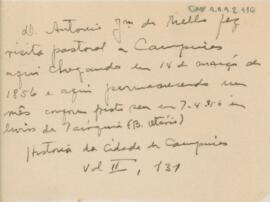 D. Antonio Jm. de Mello fez
visita pastoral a Campinas
aqui chegando em 14 de março de
1856 e aqui permanecendo um
mês conforme em 7-4-856 em
livros de Paróquia (B. Otávio)
Historia da Cidade de Campinas
Vol II, 131